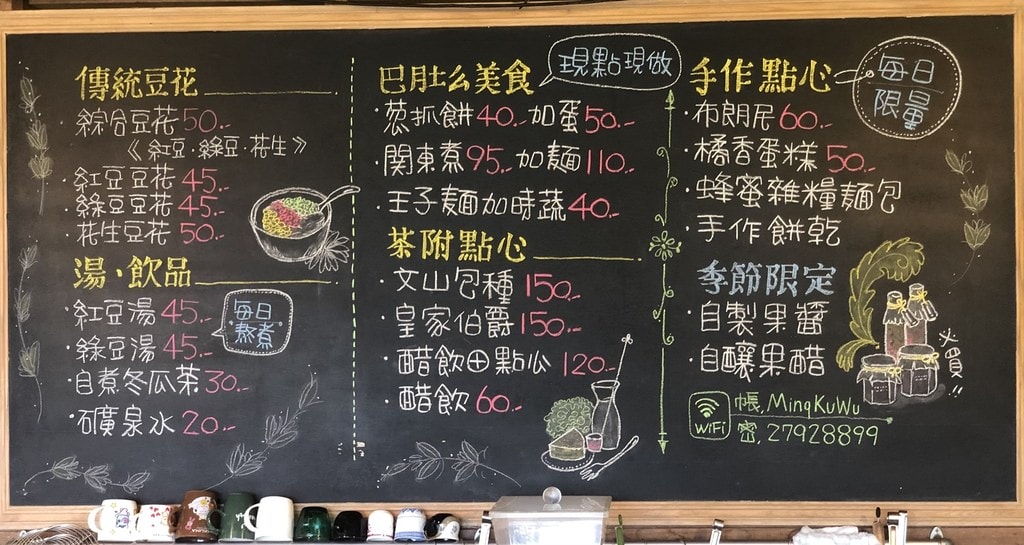 傳統豆花
·綜合豆花50.-
《紅豆·綠豆·花生》
·紅豆豆花45.-
·綠豆豆花45.-
·花生豆花50.-
湯、飲品
·紅豆湯45.-
·綠豆湯45.-
每日
熬煮
·自煮冬瓜茶30.-
·礦泉水20.-
巴肚么美食
現點現做
·蔥抓餅40.-加蛋50.-
·関東煮95.-加麵110.-
·王子麵加時蔬40.-
茶附點心
·文山包種150.-
·皇家伯爵150.-
·醋飲⊕點心120.-
·醋飲60.-
手作點心
每日
限量
·布朗尼60.-
·橘香蛋糕50.-
·蜂蜜雜糧麵包
·手作餅乾
季節限定
·自製果醬
·自釀果醋
必買!!
WiFi
帳,MingKuWu
密,27928899